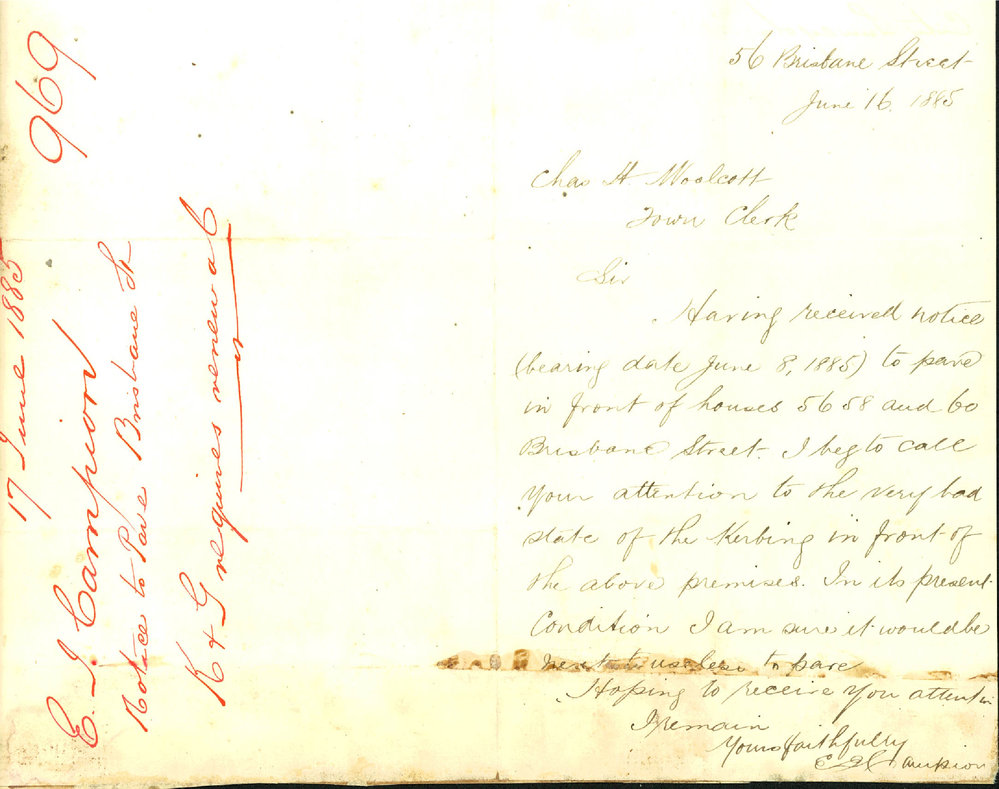 969
17 June 1885
E. J. Campion
Notice to Pave Brisbane St
K & G requires renewal
56 Brisbane Street
June 16. 1885
Chas H. Woolcott
Town Clerk
Sir
Having received notice
(bearing date June 8, 1885) to pave
in front of houses 56 58 and 60
Brisbane Street. I beg to call
your attention to the very bad
state of the Kerbing in front of
the above premises. In its present
Condition I am sure it would be
next to useless to pave
Hoping to receive you attention
I remain
Yours faithfully
E J Campion